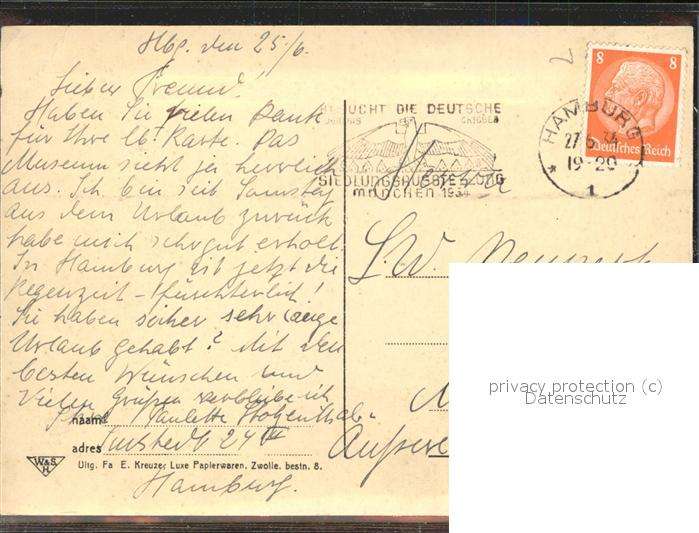 Hbg. den 25/6.
Lieber Freund!
Haben Sie vielen Dank
für Ihre lb. Karte. Das
Museum sieht ja herrlich
aus. Ich bin seit Samstag
aus dem Urlaub zurück
habe mich sehr gut erholt.
In Hamburg ist jetzt die
Regenzeit - fürchterlich!
Sie haben sicher sehr lange
Urlaub gehabt? Mit den
besten Wünschen und
Vielen Grüßen verbleibe ich
naam Paulette
adres 24 III
Hamburg.
W&S
H
Uitg. Fa E. Kreuzer, Luxe Papierwaren, Zwolle. bestn. 8.
BESUCHT DIE DEUTSCHE
OKTOBER
SIEDLUNGSAUSSTELLUNG
MÜNCHEN 1934
HAMBURG
27.6.
19-20
* 1
8 8
Deutsches Reich
privacy protection (c)
Datenschutz